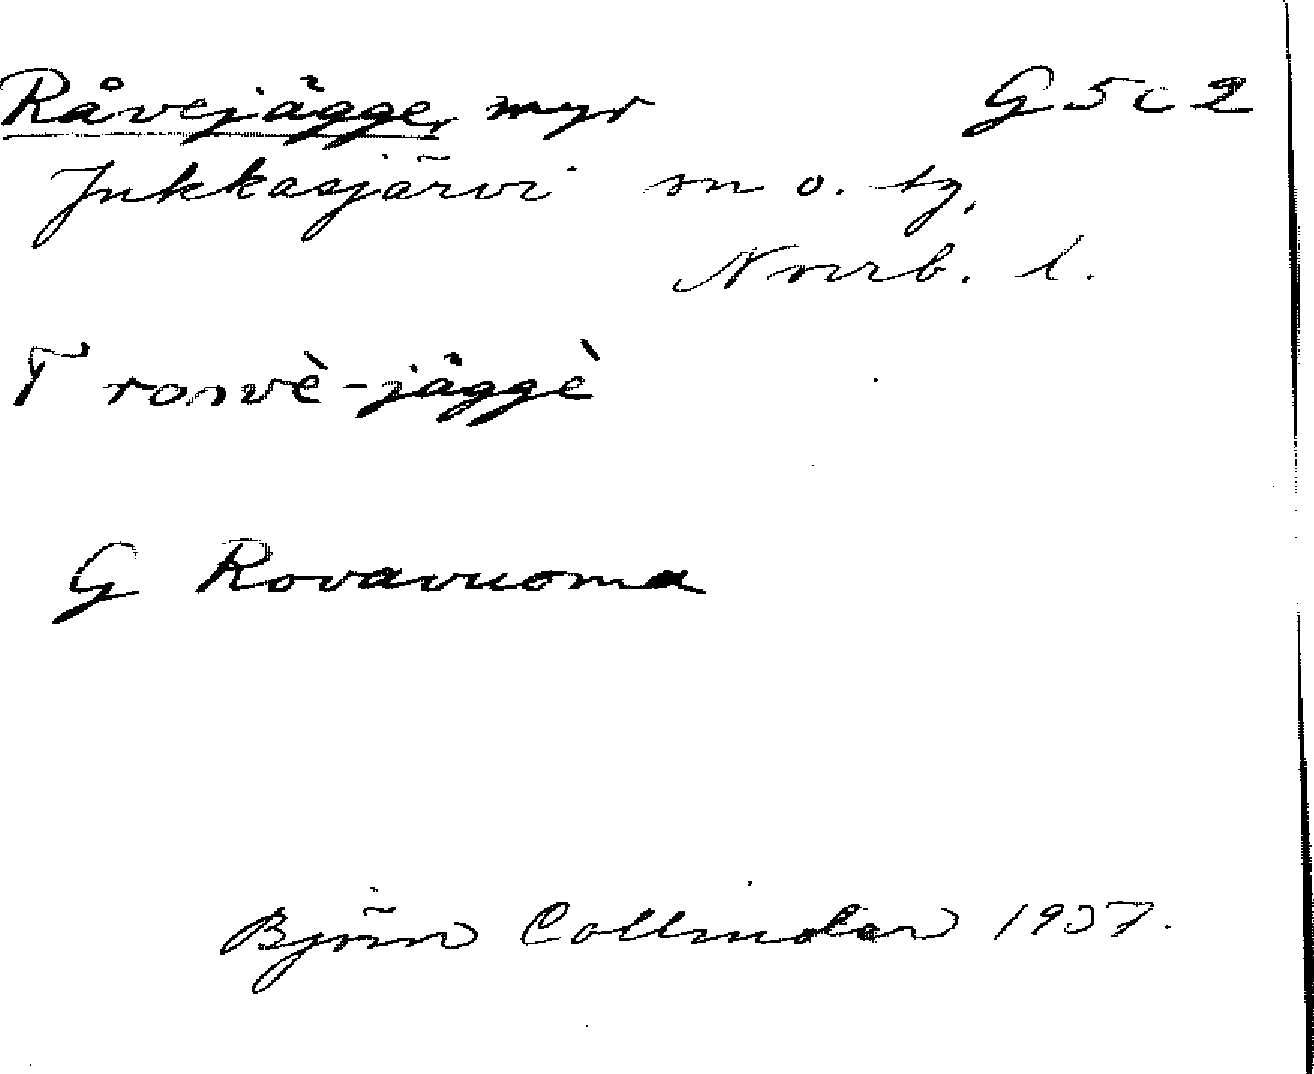 Råvejägge, myr G 5 c 2
Jukkasjärvi sn o. tg,
Norrb. l.
T rovvè-jäggè
G Rovavuoma
Björn Collinder 1937.